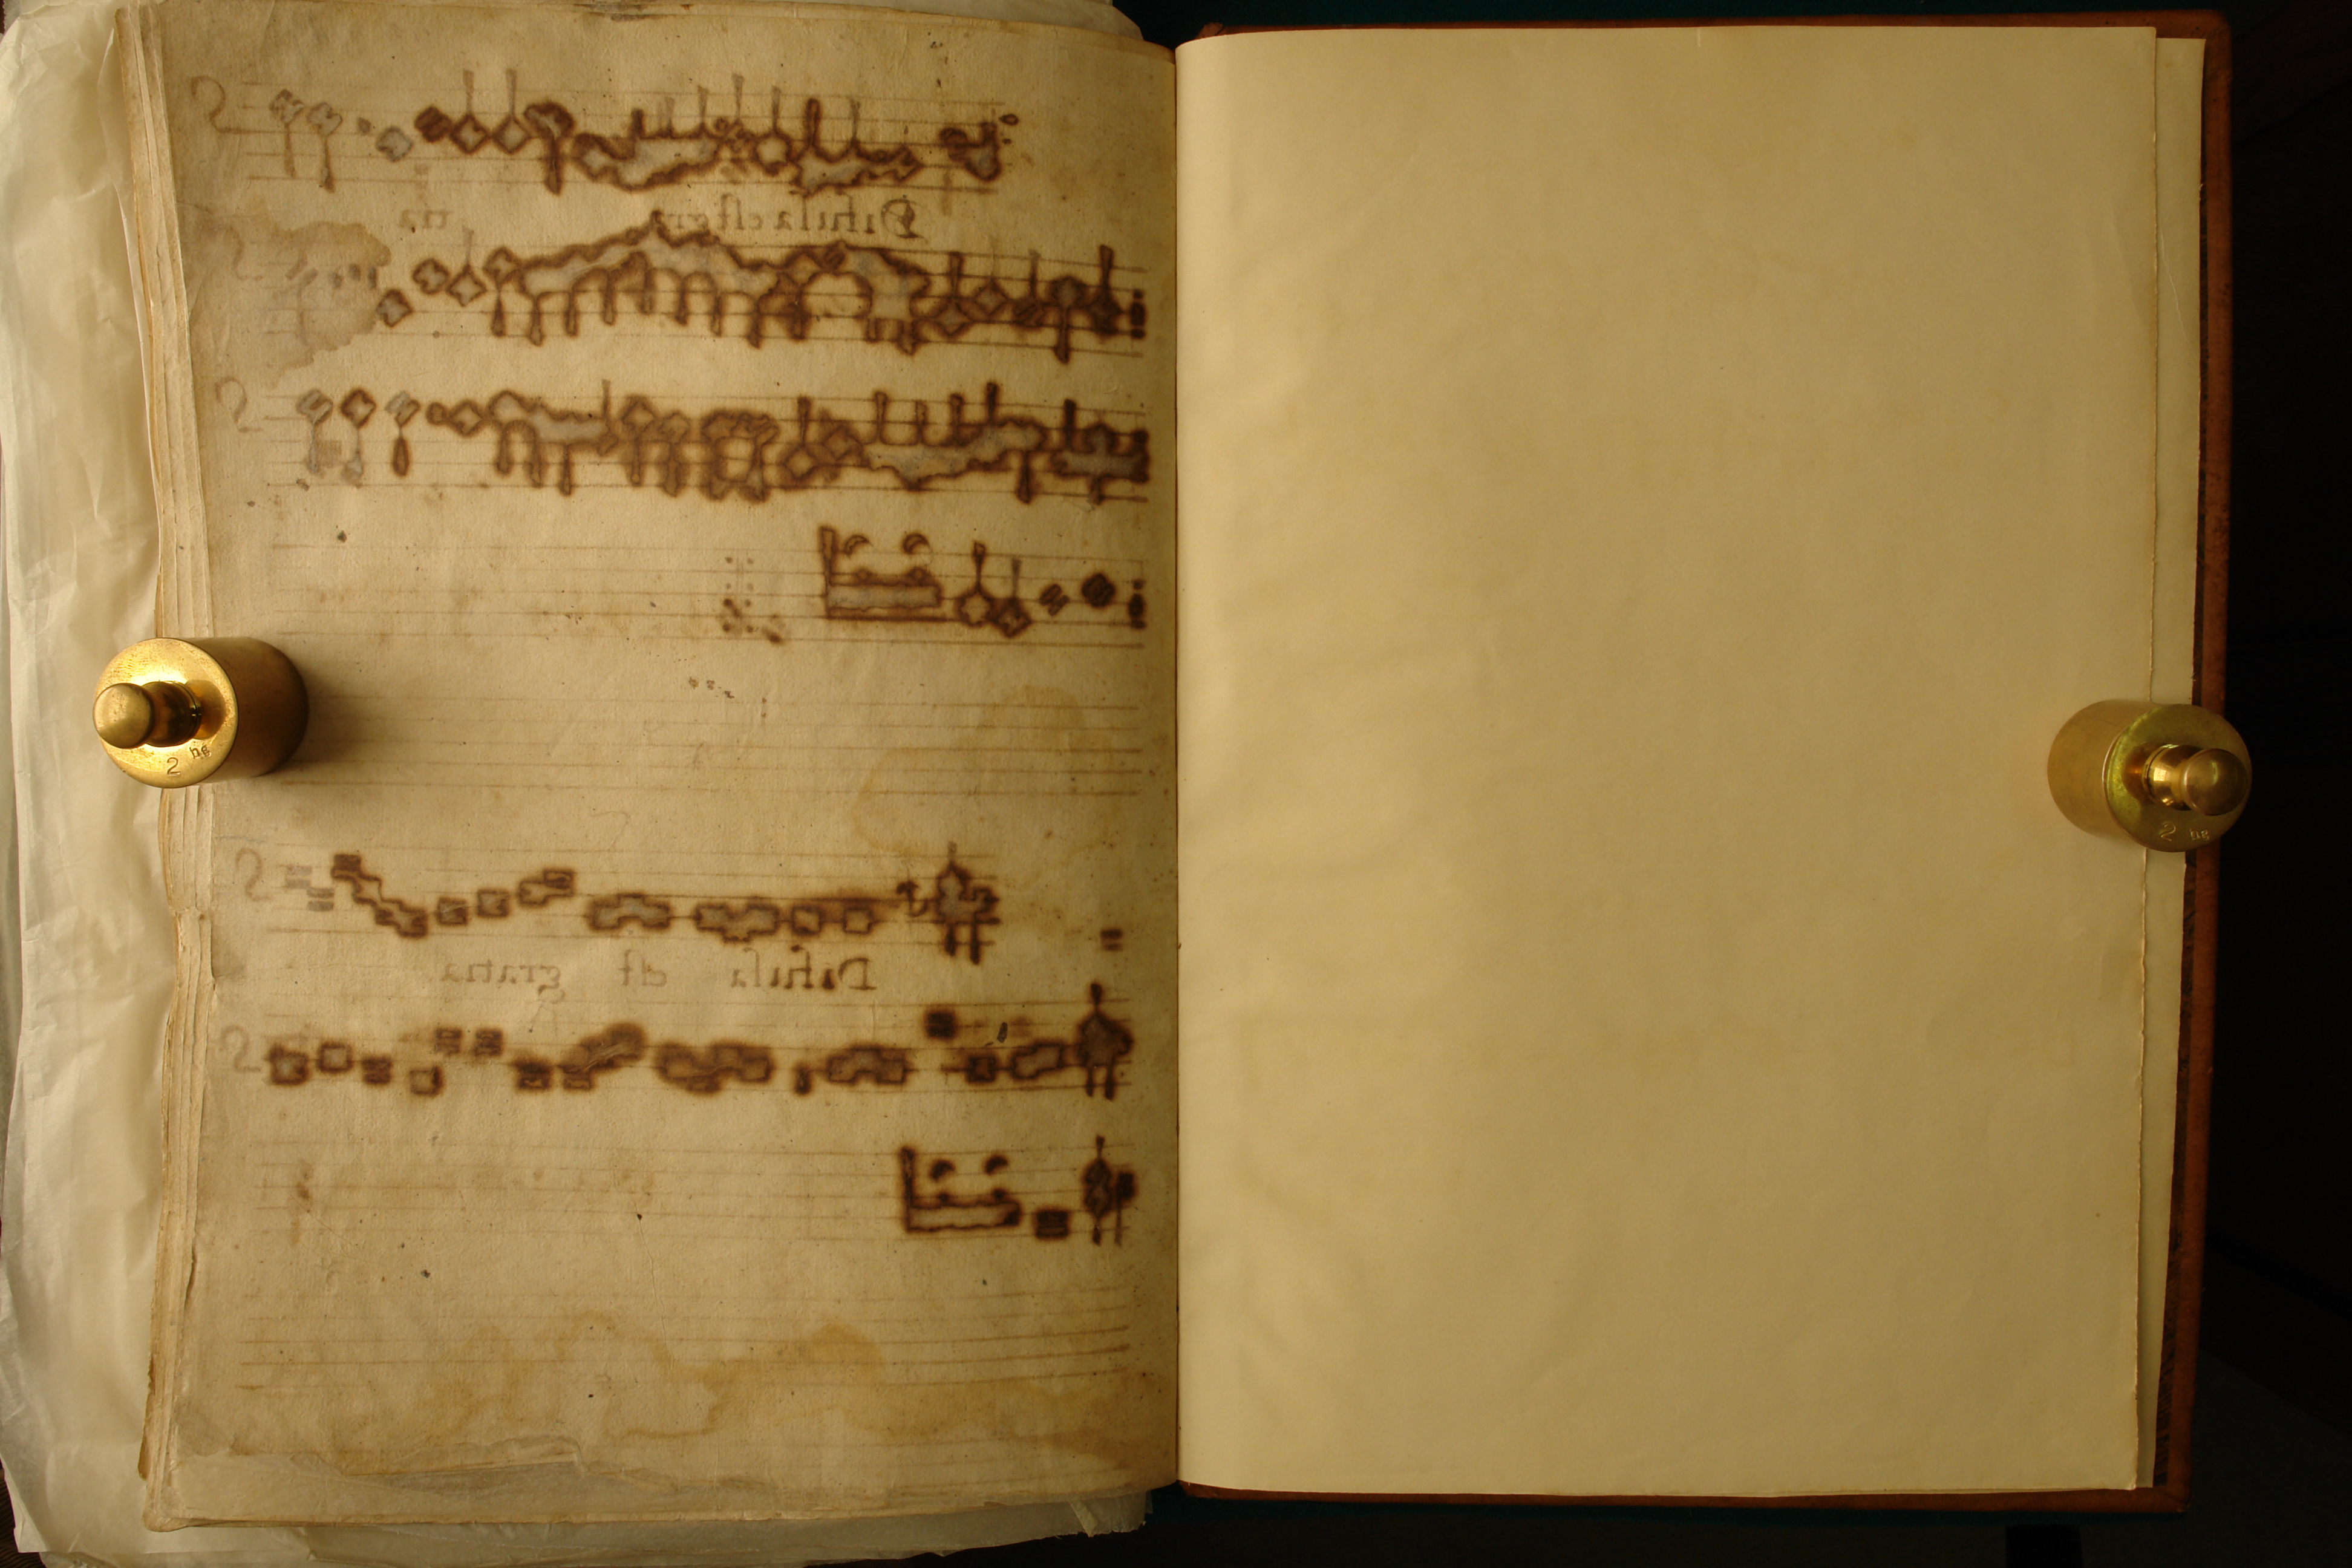 Difusa est gra tia
Difusa est gratia
2 hg
2 hg